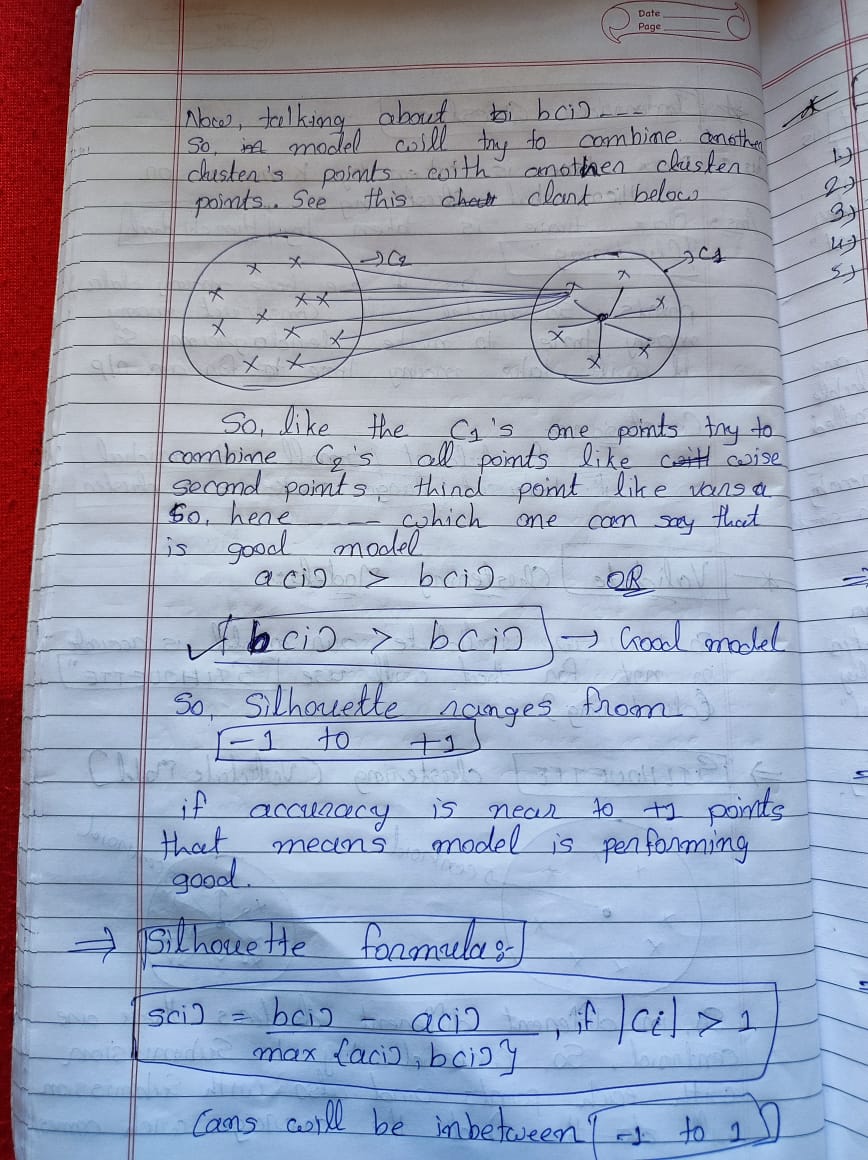 Date
Page
Now, talking about b(i) ----
So, model will try to combine another
cluster's points with another cluster
points. See this chart below
→C2
→C1
So, like the C1's one points try to
combine C2's all points like wise
second points, third point like varsa
So, here ---- which one can say that
is good model
a(i) > b(i) OR
✓[b(i) > b(i)] → Good model
So, Silhouette ranges from
-1 to +1
if accuracy is near to +1 points
that means model is performing
good.
⇒ Silhouette formula:-
s(i) = b(i) - a(i) / max {a(i), b(i)}, if |Ci| > 1
(ans will be inbetween -1 to 1)
1→
2→
3→
4→
5→